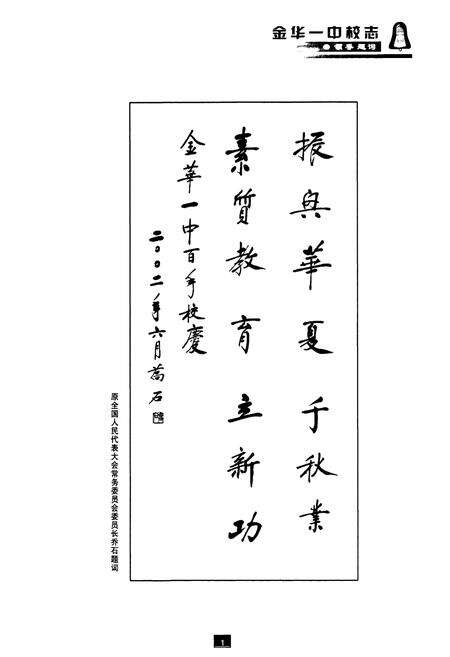 金华一中校志
●领导题词
振兴華夏千秋業
素質教育立新功
金華一中百年校慶
二〇〇二年六月喬石
原全国人民代表大会常务委员会委员长乔石题词
1